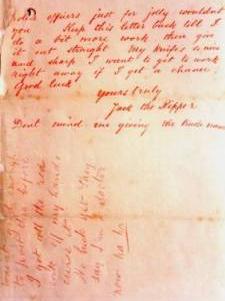 police officers just for jolly wouldnt
you Keep this letter back till I
do a bit more work then give
it out straight My knife's so nice
and sharp I want to get to work
right away if I get a chance.
Good luck
Yours truly
Jack the Ripper
Dont mind me giving the trade name
to post this before
I got all the red
ink off my hands
curse it
No luck yet. They
say I'm a doctor
now ha ha